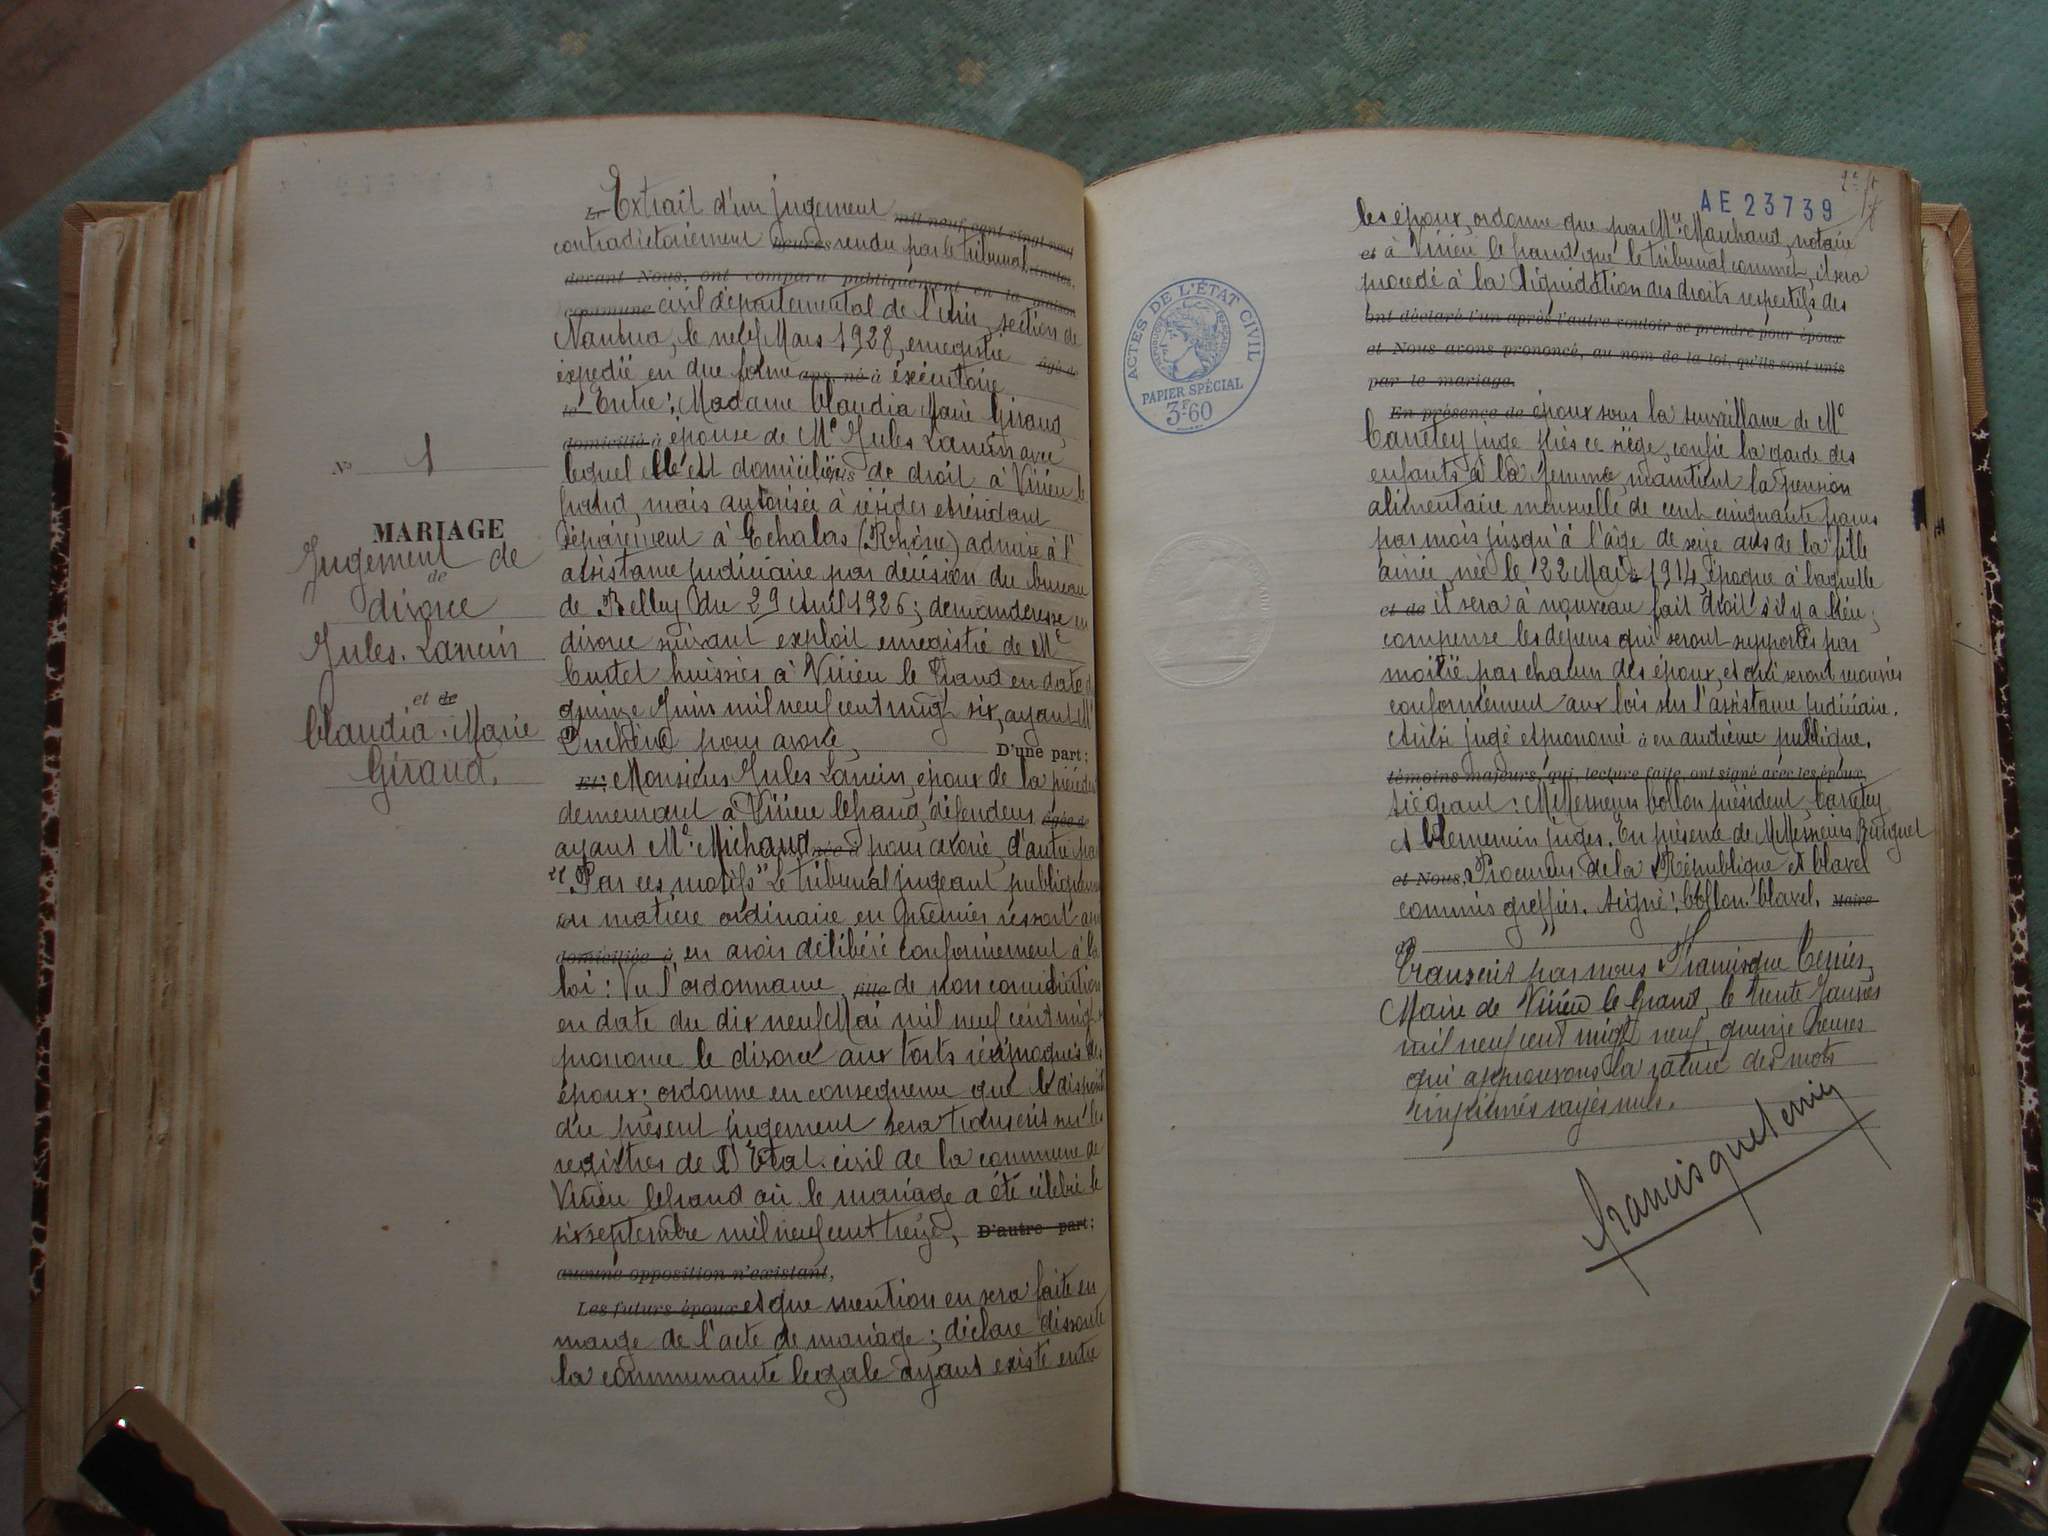 N° 1
MARIAGE
Jugement de
de
divorce
Jules Lancin
et de
Claudia Marie
Giraud.
Le Extrait d'un jugement mil neuf cent vingt neuf
contradictoirement heures rendu par le tribunal minutes,
devant Nous, ont comparu publiquement en la maison
commune civil départemental de l'Ain, section de
Nantua, le neuf Mars 1928, enregistré âgé de
expédié en due forme ans, né à exécutoire
le Entre: Madame Claudia Marie Giraud,
domicilié à épouse de Mr Jules Lancin avec
lequel elle est domiciliée de droit à Virieu le
Grand, mais autorisée à résider et résidant
séparément à Echalas (Rhône) admise à l'
assistance judiciaire par décision du bureau
de Belley du 29 Avril 1926; demanderesse en
divorce suivant exploit enregistré de Me
huissier à Virieu le Grand en date du
quinze Juin mil neuf cent vingt six, ayant Me
pour avoué, D'une part;
Et: Monsieur Jules Lancin, époux de la précédente
demeurant à Virieu le Grand, défendeur âgée de
ayant Me Michaud née à pour avoué, d'autre part
"Par ces motifs" Le tribunal jugeant publiquement
en matière ordinaire en premier ressort
domiciliée à en avoir délibéré conformément à la
loi: Vu l'ordonnance fille de non conciliation
en date du dix neuf Mai mil neuf cent vingt
prononce le divorce aux torts réciproques des
époux; ordonne en conséquence que le dispositif
du présent jugement sera transcrit sur les
registres de l'Etat civil de la commune de
Virieu le Grand où le mariage a été célébré le
six septembre mil neuf cent treize, D'autre part;
aucune opposition n'existant,
Les futurs époux et que mention en sera faite en
marge de l'acte de mariage; déclare dissoute
la communauté légale ayant existé entre
AE 23739
ACTES DE L'ÉTAT CIVIL
PAPIER SPÉCIAL
3F.60
les époux, ordonne que par Me Marchand, notaire
et à Virieu le Grand que le tribunal commet, il sera
procédé à la liquidation des droits respectifs des
ont déclaré l'un après l'autre vouloir se prendre pour époux
et Nous avons prononcé, au nom de la loi, qu'ils sont unis
par le mariage.
En présence de époux sous la surveillance de Mr
juge près ce siège, confie la garde des
enfants à la femme, maintient la pension
alimentaire mensuelle de cent cinquante francs
par mois jusqu'à l'âge de seize ans de la fille
ainée, née le 22 1914, époque à laquelle
et de il sera à nouveau fait droit s'il y a lieu;
compense les dépens qui seront supportés par
moitié par chacun des époux, et qui seront recouvrés
conformément aux lois sur l'assistance judiciaire.
Ainsi jugé et prononcé à en audience publique,
témoins majeurs, qui, lecture faite, ont signé avec les époux
siégeant: MM Messieurs Bollon président,
et juges. En présence de MM Messieurs
et Nous, Procureur de la République et Clavel
commis greffier. Signé: Bollon. Clavel. Maire
de
Transcrit par nous Francisque Terrier,
Maire de Virieu le Grand, le trente Janvier
mil neuf cent vingt neuf, quinze heures
qui approuvons la rature des mots
imprimés rayés nuls.
Francisque Terrier